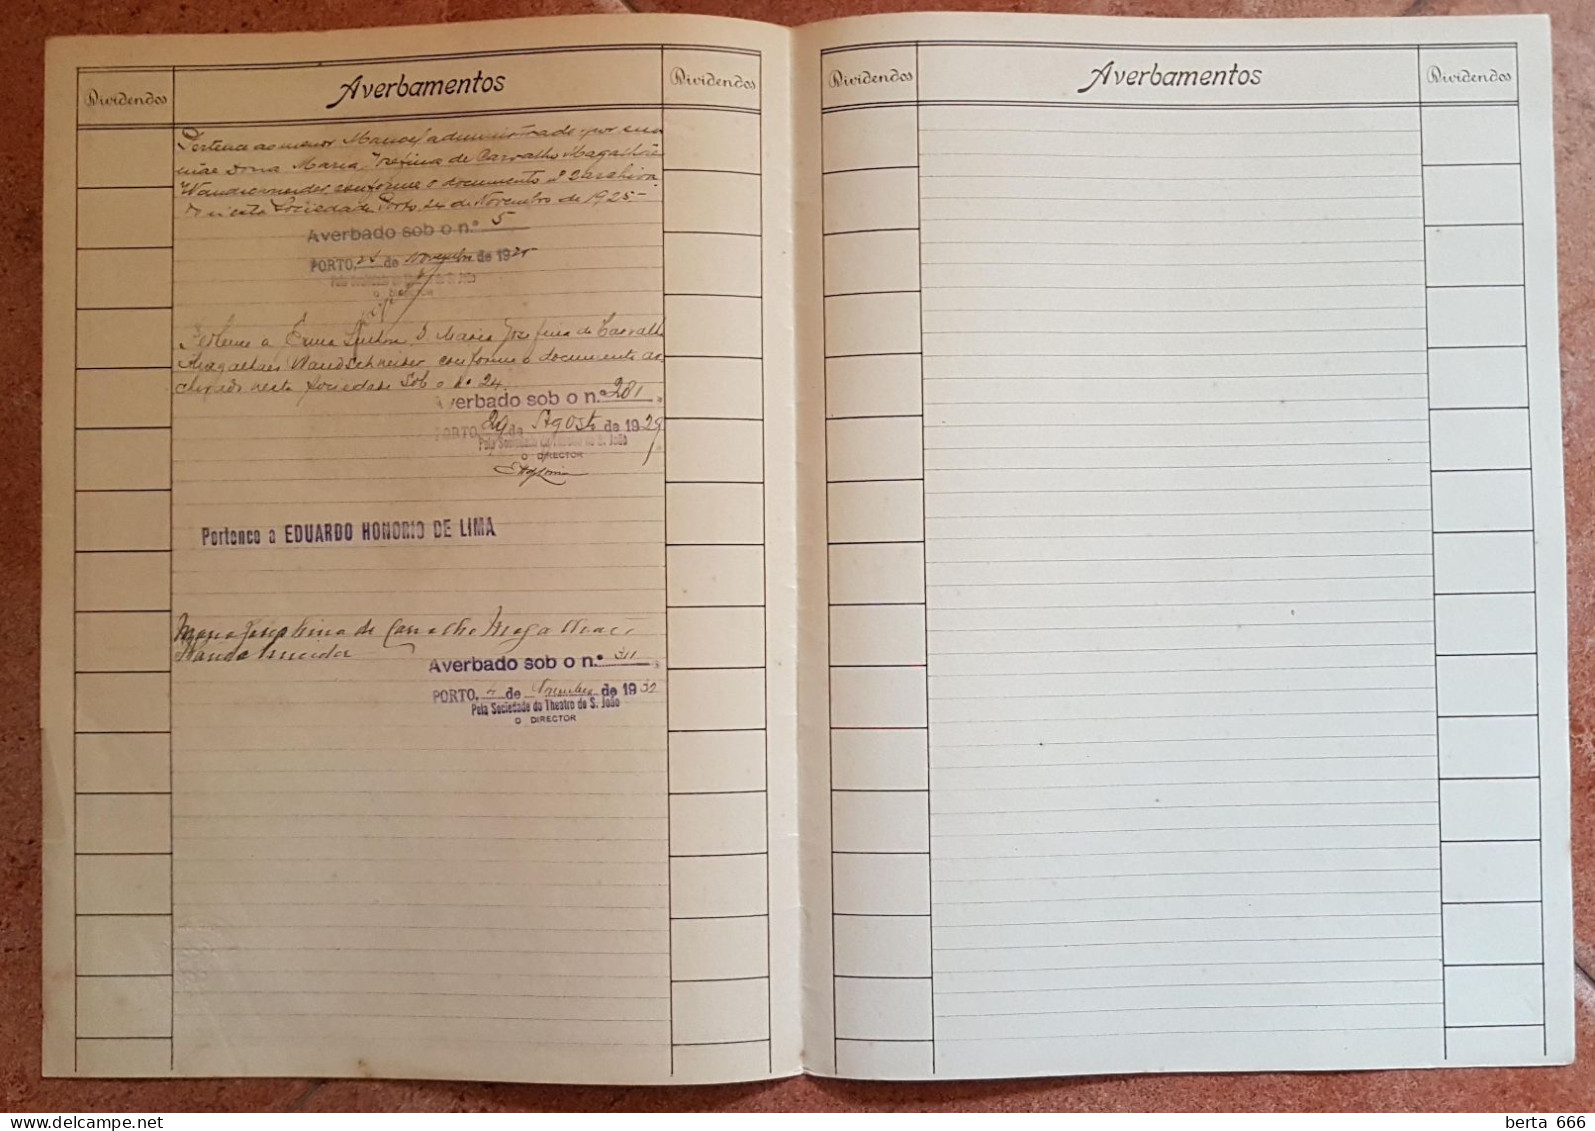 Dividendos
Averbamentos
Dividendos
Pertence ao menor Manoel administrado por sua
mãe Dona Maria Josefina de Carvalho Magalhães
Wandschneider, conforme o documento nº 2 archiva-
do n'esta Sociedade. Porto 24 de Novembro de 1925-
Averbado sob o n.º 5
PORTO, 24 de Novembro de 1925
Pela Sociedade do Theatro de S. João
O DIRECTOR
Pertence a Exma Senhora D Maria Josefina de Carvalho
Magalhães Wandschneider, conforme o documento ar-
chivado nesta sociedade sob o nº 24.
Averbado sob o n.º 281
PORTO, 29 de Agosto de 1929
Pela Sociedade do Theatro de S. João
O DIRECTOR
Pertence a EDUARDO HONORIO DE LIMA
Maria Josephina de Carvalho Magalhães
Wandschneider
Averbado sob o n.º 311
PORTO, 4 de de 1932
Pela Sociedade do Theatro de S. João
O DIRECTOR
Dividendos
Averbamentos
Dividendos
delcampe.net
berta 666